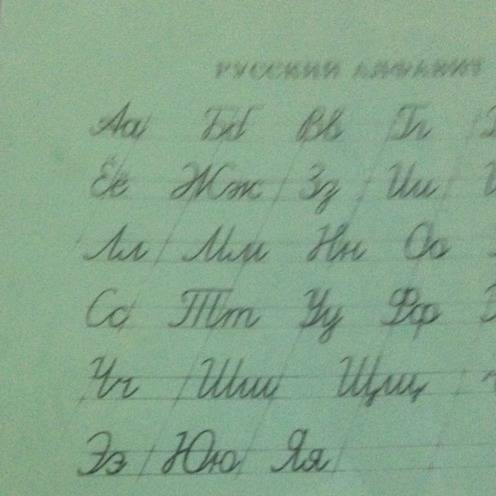 РУССКИЙ АЛФАВИТ
Аа Бб Вв Гг
Ёё Жж Зз Ии
Лл Мм Нн Оо
Сс Тт Уу Фф
Чч Шш Щщ
Ээ Юю Яя